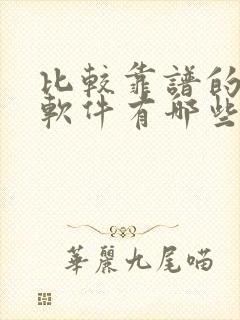 比較靠譜的
軟件有哪些
華麗九尾喵